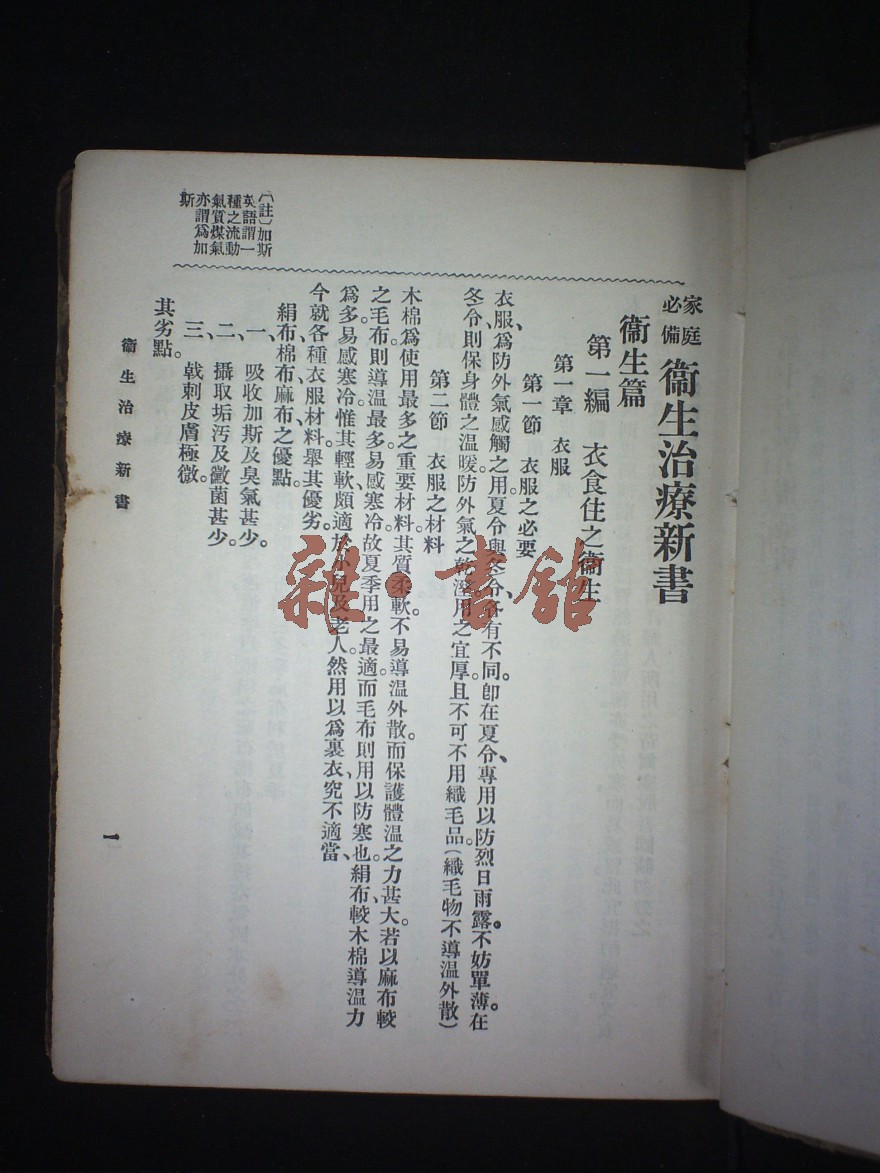 家庭必備 衞生治療新書
衞生篇
第一編 衣食住之衞生
第一章 衣服
第一節 衣服之必要
衣服、爲防外氣感觸之用。夏令與冬令、各有不同。卽在夏令、專用以防烈日雨露。不妨單薄。在
冬令、則保身體之温暖、防外氣之乾溼。用之宜厚。且不可不用織毛品。(織毛物不導温外散)
第二節 衣服之材料
木棉爲使用最多之重要材料。其質柔軟。不易導温外散。而保護體温之力甚大。若以麻布較
之毛布、則導温最多。易感寒冷。故夏季用之最適。而毛布則用以防寒也。絹布、較木棉導温力
爲多。易感寒冷。惟其輕軟、頗適於小兒及老人。然用以爲裏衣、究不適當、
今就各種衣服材料。舉其優劣。
絹布、棉布、麻布之優點。
一、 吸收加斯及臭氣甚少。
二、 攝取垢汚及黴菌甚少。
三、 戟刺皮膚極微。
其劣點。
(註)加斯
英語謂一
種之流動
氣質煤氣
亦謂爲加
斯
衞生治療新書
一
雜·書館